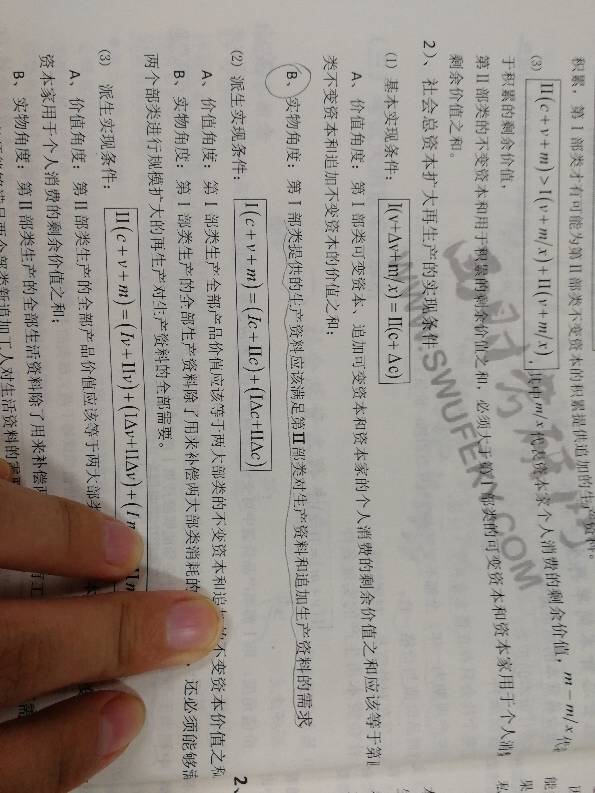 积累，第Ⅰ部类才有可能为第Ⅱ部类不变资本的积累提供追加的生产资料。
(3) Ⅱ(c+v+m)>Ⅰ(v+m/x)+Ⅱ(v+m/x)，其中m/x代表资本家个人消费的剩余价值，m-m/x代
于积累的剩余价值，
第Ⅱ部类的不变资本和用于积累的剩余价值之和，必须大于第Ⅰ部类的可变资本和资本家用于个人消
剩余价值之和。
2）、社会总资本扩大再生产的实现条件
(1) 基本实现条件：Ⅰ(v+Δv+m/x)=Ⅱ(c+Δc)
A、价值角度：第Ⅰ部类可变资本、追加可变资本和资本家的个人消费的剩余价值之和应该等于第Ⅱ
类不变资本和追加不变资本的价值之和；
B、实物角度：第Ⅰ部类提供的生产资料应该满足第Ⅱ部类对生产资料和追加生产资料的需求
(2) 派生实现条件：Ⅰ(c+v+m)=(Ic+Ⅱc)+(IΔc+ⅡΔc)
A、价值角度：第Ⅰ部类生产全部产品价值应该等于两大部类的不变资本和追加的不变资本价值之和
B、实物角度：第Ⅰ部类生产的全部生产资料除了用来补偿两大部类消耗的，还必须能够满
两个部类进行规模扩大的再生产对生产资料的全部需要。
(3) 派生实现条件：Ⅱ(c+v+m)=(Iv+Ⅱv)+(IΔv+ⅡΔv)+(I
A、价值角度：第Ⅱ部类生产的全部产品价值应该等于两大部类
资本家用于个人消费的剩余价值之和；
B、实物角度：第Ⅱ部类生产的全部生活资料除了用来补偿两
两个部类新追加工人对生活资料的需要
WWW.SWUFEKY.COM
2、